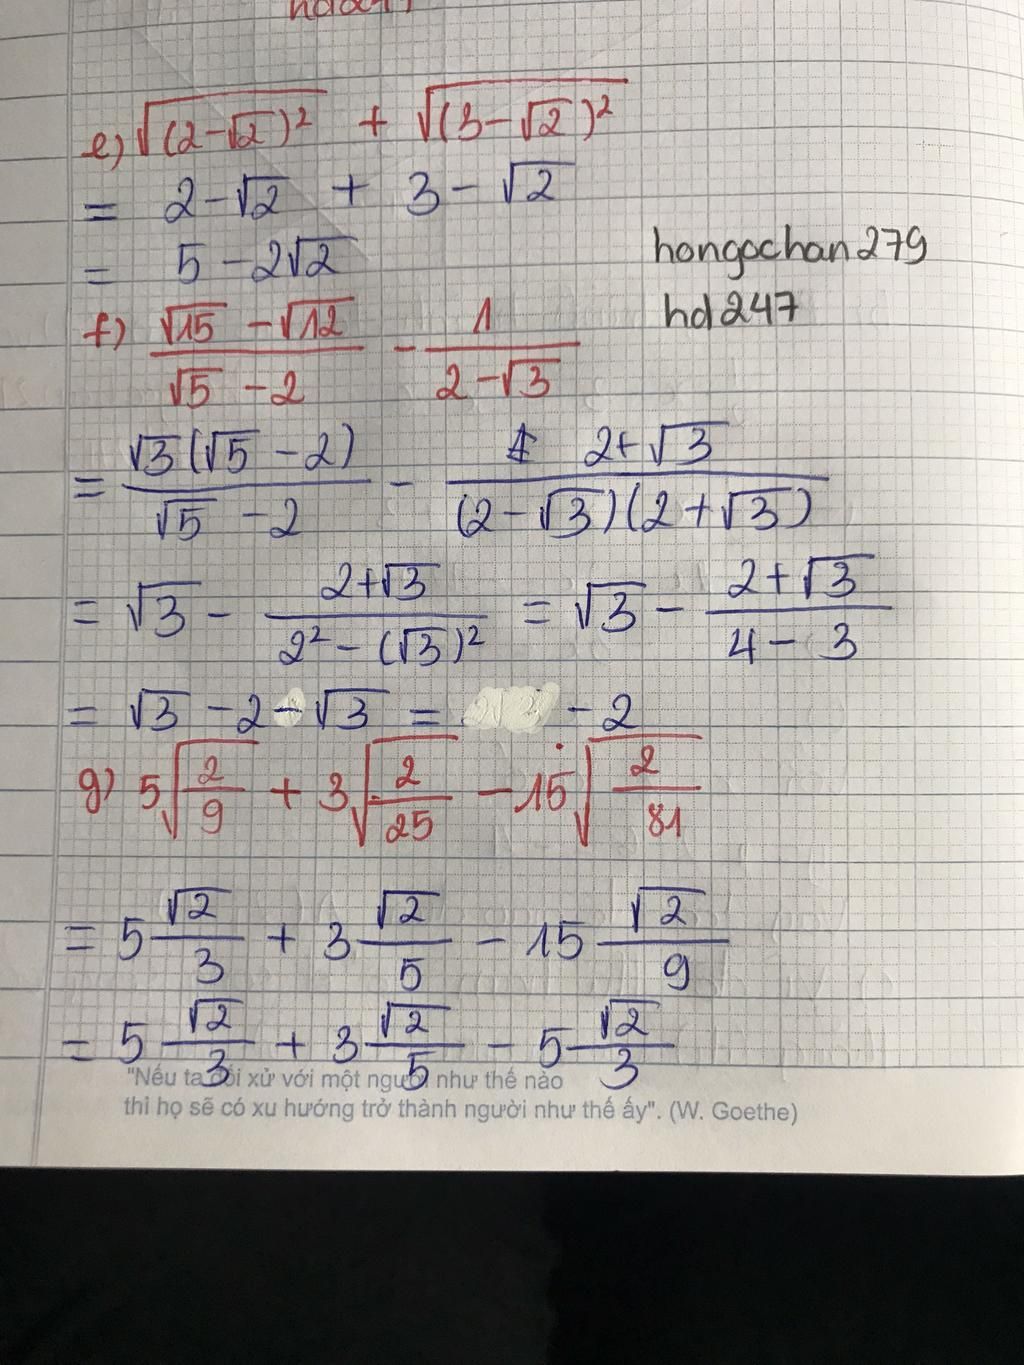 e) √(2-√2)² + √(3-√2)²
= 2-√2 + 3-√2
= 5-2√2
hongochan279
hd247
f) (√15 - √12)/(√5 - 2) - 1/(2-√3)
= √3(√5 - 2)/(√5 - 2) - (2+√3)/((2-√3)(2+√3))
= √3 - (2+√3)/(2² - (√3)²) = √3 - (2+√3)/(4 - 3)
= √3 - 2 - √3 = -2
g) 5√(2/9) + 3√(2/25) - 15√(2/81)
= 5 √2/3 + 3 √2/5 - 15 √2/9
= 5 √2/3 + 3 √2/5 - 5 √2/3
"Nếu ta đối xử với một người như thế nào
thì họ sẽ có xu hướng trở thành người như thế ấy". (W. Goethe)